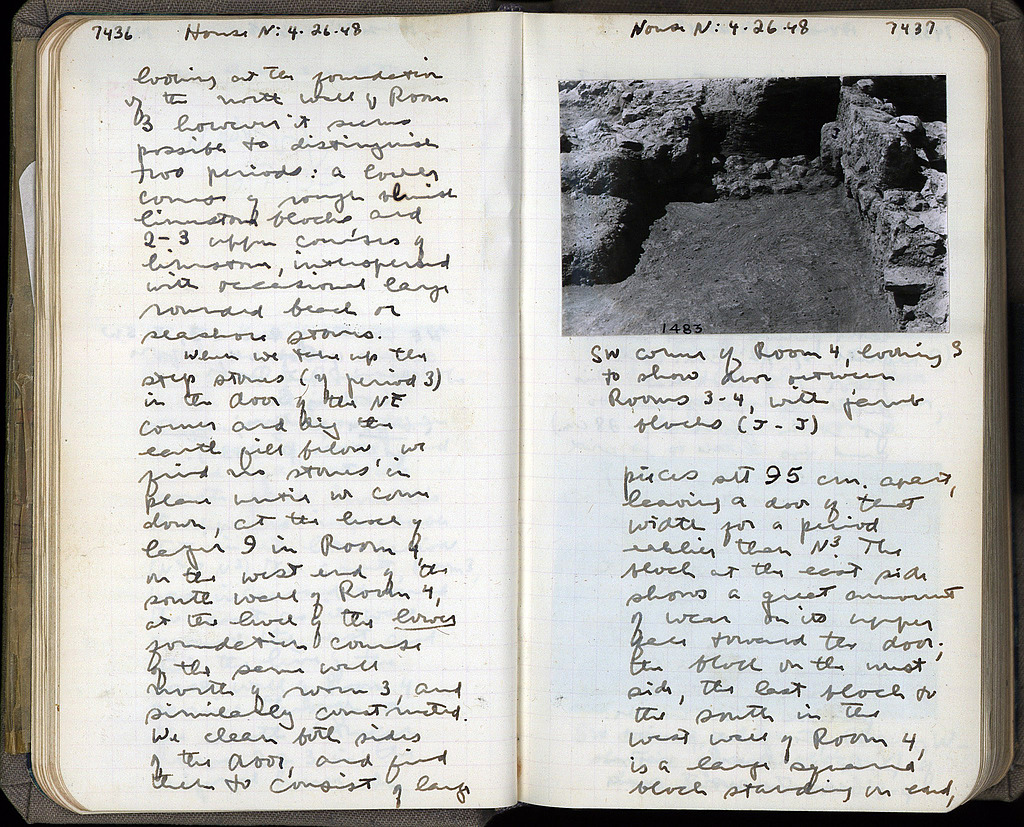 7436 House N: 4.26.48
looking at the foundation
of the north wall of Room
3 however it seems
possible to distinguish
two periods: a lower
course of rough bluish
limestone blocks and
2-3 upper courses of
limestone, interspersed
with occasional large
rounded beach or
seashore stones.
When we take up the
step stones (of period 3)
in the door of the NE
corner and dig the
earth fill below we
find no stones in
place until we come
down, at the level of
layer 9 in Room 4,
on the west end of the
south wall of Room 4,
at the level of the lower
foundation course
of the same wall
north of room 3, and
similarly constructed.
We clean both sides
of the door, and find
them to consist of large
House N: 4.26.48 7437
1483
SW corner of Room 4, looking S
to show door between
Rooms 3-4, with jamb
blocks (J-J)
pieces set 95 cm. apart,
leaving a door of that
width for a period
earlier than N3 The
block at the east side
shows a great amount
of wear on its upper
face toward the door;
the block on the west
side, the last block on
the south in the
west wall of Room 4,
is a large squared
block standing on end,